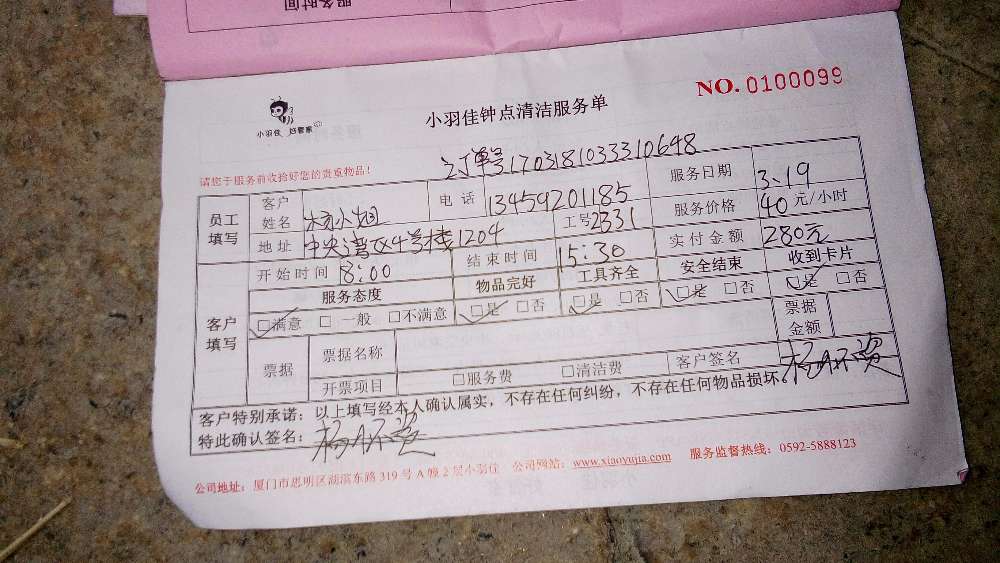 服务时间
NO. 0100099
小羽佳 妈管家
小羽佳钟点清洁服务单
订单号170318103331０648
请您于服务前收拾好您的贵重物品!
员工填写 客户姓名 杨小姐 电话 13459201185 服务日期 3.19
地址 中央湾区4号楼1204 工号2331 服务价格 40元/小时
客户填写 开始时间 8:00 结束时间 15:30 实付金额 280元
服务态度 物品完好 工具齐全 安全结束 收到卡片
☑满意 □一般 □不满意 ☑是 □否 ☑是 □否 ☑是 □否 ☑是 □否
票据 票据名称 票据金额
开票项目 □服务费 □清洁费 客户签名
客户特别承诺：以上填写经本人确认属实，不存在任何纠纷，不存在任何物品损坏，
特此确认签名：
公司地址：厦门市思明区湖滨东路319号A幢2层小羽佳 公司网站：www.xiaoyujia.com 服务监督热线：0592-5888123